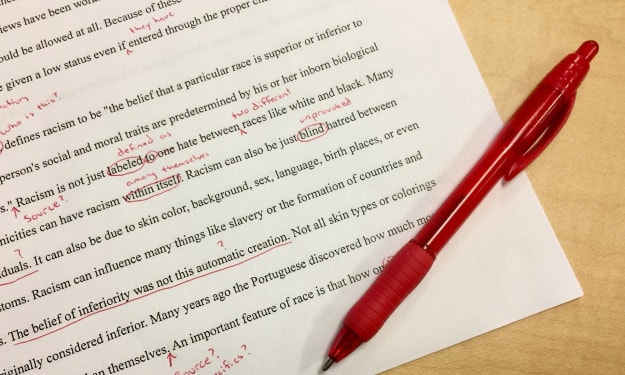 iews have been
ould be allowed at all. Because of these
they have
e given a low status even if entered through the proper
who is this?
defines racism to be "the belief that a particular race is superior or inferior to
person's social and moral traits are predetermined by his or her inborn biological
defined as two different
s." Racism is not just labeled to one hate between races like white and black. Many
source? among themselves unprovoked
nicities can have racism within itself. Racism can also be just blind hatred between
duals. It can also be due to skin color, background, sex, language, birth places, or even
stoms. Racism can influence many things like slavery or the formation of countries and
?
s. The belief of inferiority was not this automatic creation. Not all skin types or colorings
iginally considered inferior. Many years ago the Portuguese discovered how much mo
an themselves. An important feature of race is that how
source?